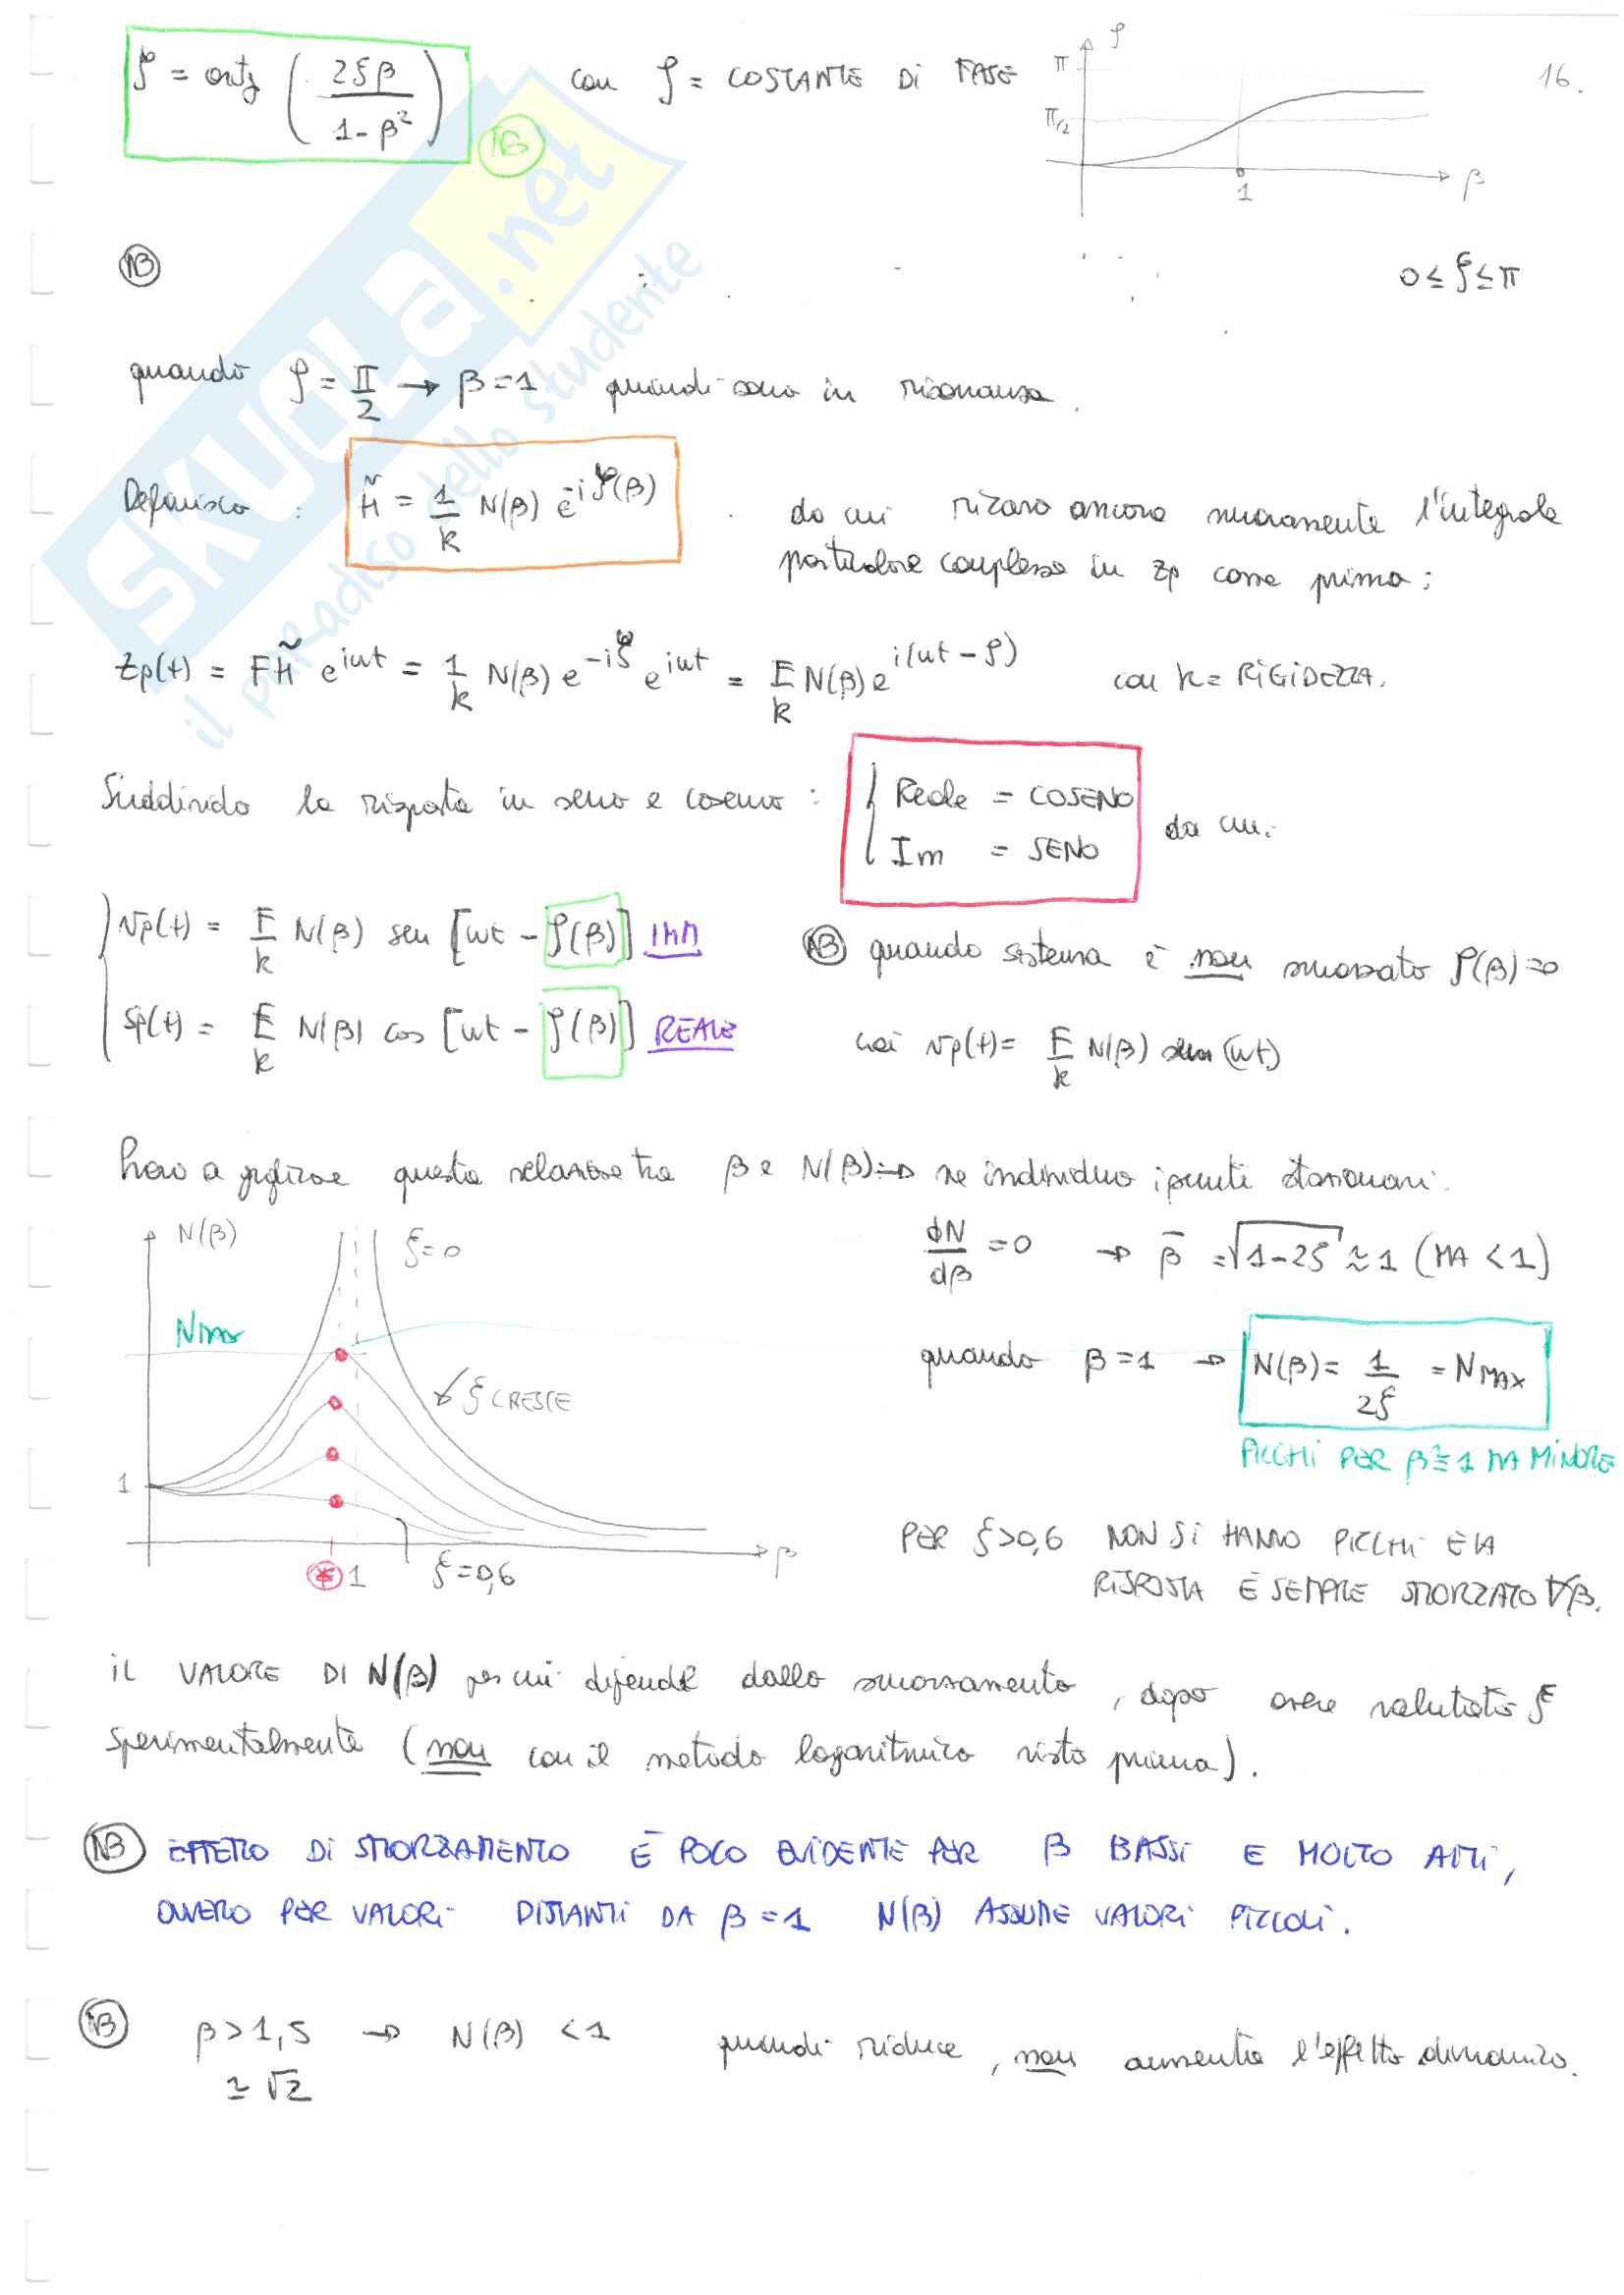 φ = arctg ( 2ξβ / (1-β²) ) con φ = COSTANTE DI FASE
16.
NB
φ
π
π/2
1
β
NB
0 ≤ φ ≤ π
quando φ = π/2 → β = 1 quindi sono in risonanza.
Definisco : H̃ = 1/k N(β) e^-iφ(β) . da cui ricavo ancora nuovamente l'integrale
particolare complesso in zp come prima :
zp(t) = FH̃ e^iωt = 1/k N(β) e^-iφ e^iωt = F/k N(β) e^i(ωt - φ) con k = RIGIDEZZA.
Suddivido la risposta in seno e coseno : { Reale = COSENO
Im = SENO
da cui:
vp(t) = F/k N(β) sen [ωt - φ(β)] IMM
sp(t) = F/k N(β) cos [ωt - φ(β)] REALE
NB quando sistema è non smorzato φ(β)=0
vp(t) = F/k N(β) sen (ωt)
questa relazione tra β e N(β) => ne individuo i punti stazionari.
N(β)
ξ=0
Nmax
ξ CRESCE
1
* 1
ξ=0,6
β
dN/dβ = 0 → β̄ = √1-2ξ ≈ 1 (MA < 1)
quando β = 1 → N(β) = 1/2ξ = NMAX
PICCHI PER β ≅ 1 MA MINORE
PER ξ>0,6 NON SI HANNO PICCHI E LA
RISPOSTA È SEMPRE SMORZATO ∀β.
IL VALORE DI N(β) per cui dipende dallo smorzamento, dopo avere valutato ξ
sperimentalmente (non con il metodo logaritmico visto prima).
NB EFFETTO DI SMORZAMENTO È POCO EVIDENTE PER β BASSI E MOLTO ALTI,
OVVERO PER VALORI DISTANTI DA β = 1 N(β) ASSUME VALORI PICCOLI.
NB β > 1,5 → N(β) < 1 quindi riduce, non aumenta l'effetto dinamico.
≃ √2
SKUOLA.net
il paradiso dello studente